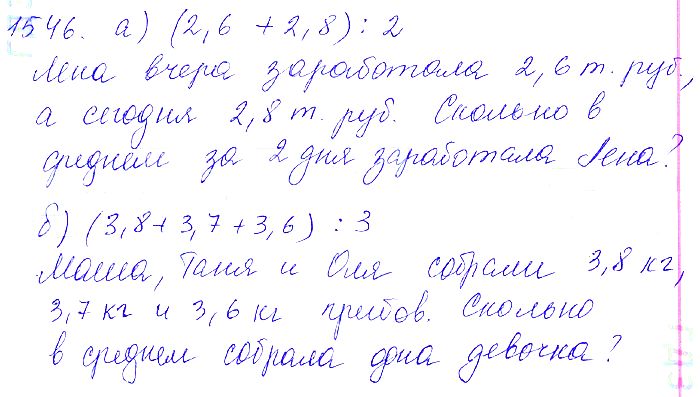 1546. а) (2,6 + 2,8) : 2
Лена вчера заработала 2,6 т. руб.,
а сегодня 2,8 т. руб. Сколько в
среднем за 2 дня заработала Лена?
б) (3,8 + 3,7 + 3,6) : 3
Маша, Таня и Оля собрали 3,8 кг,
3,7 кг и 3,6 кг грибов. Сколько
в среднем собрала одна девочка?